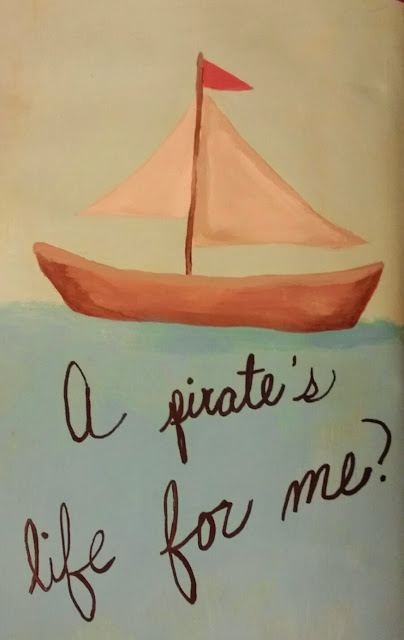 A pirate's
life for me?